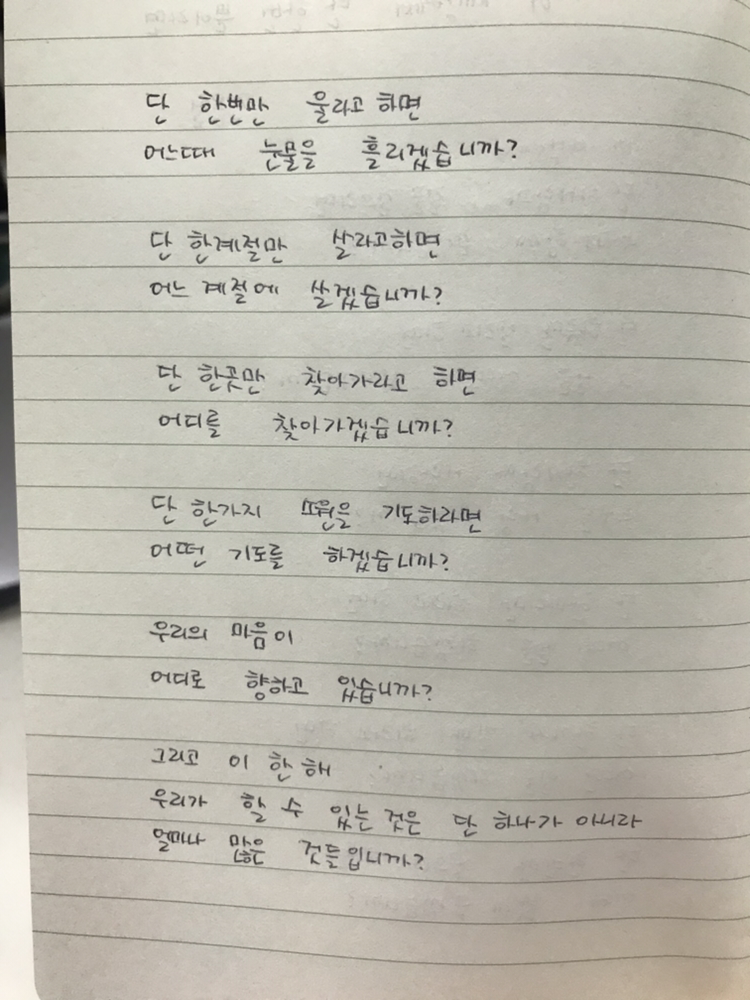 단 한번만 울라고 하면
어느때 눈물을 흘리겠습니까?
단 한계절만 살라고하면
어느 계절에 살겠습니까?
단 한곳만 찾아가라고 하면
어디를 찾아가겠습니까?
단 한가지 소원을 기도하라면
어떤 기도를 하겠습니까?
우리의 마음이
어디로 향하고 있습니까?
그리고 이 한 해
우리가 할 수 있는 것은 단 하나가 아니라
얼마나 많은 것들입니까?